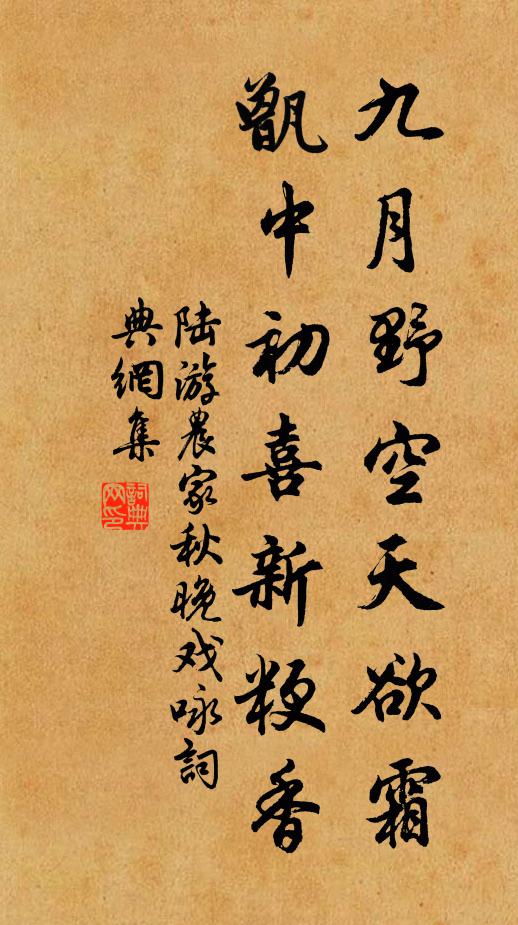 九月野空天欲霜
甑中初喜新粳香
陆游農家秋晚戏咏詞
典網集
詞典網印